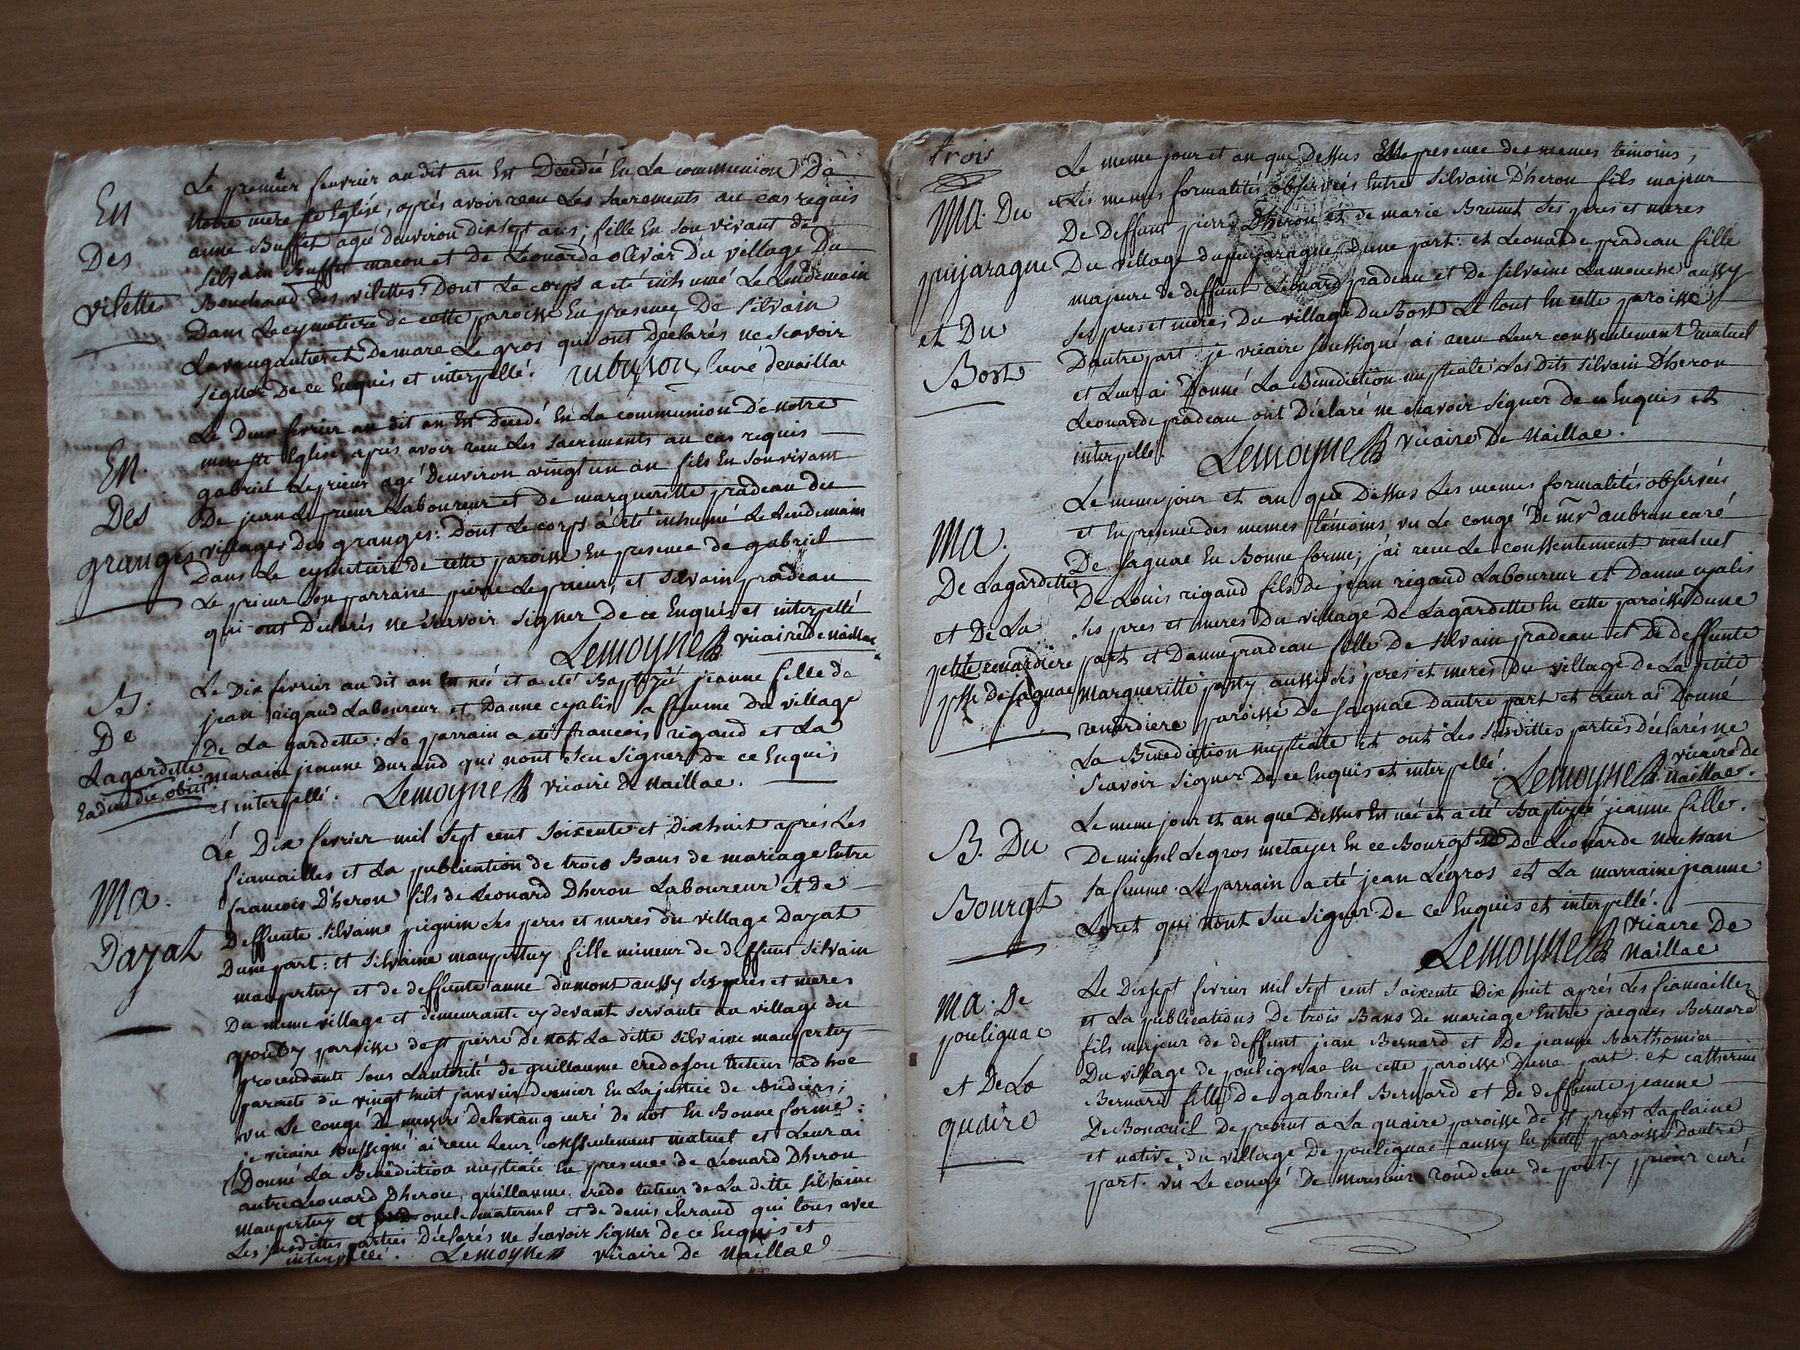 En
Des
vilettes
Le premier fevrier audit an Est Decedée En La communion De
Notre mere ste Eglise, aprés avoir recu Les Sacrements au cas requis
anne Buffet agée denviron dix sept ans; fille En son vivant de
Silvain Buffet macon et De Leonarde olivier Du village Du
Bouchaud des vilettes: Dont Le corps a eté inhumé Le Lendemain
Dans Le cymetiere de cette paroisse En presence De Silvain
qui ont Declarés ne Scavoir
signer De ce Enquis et interpellé. curé denaillac
En
Des
granges
Le Deux fevrier au dit an Est Decedé En La communion De Notre
mere ste Eglise, aprés avoir recu Les Sacrements au cas requis
gabriel Leprieur agé denviron vingt un an fils En son vivant
De jean Leprieur Laboureur et de margueritte pradeau du
village Des granges: Dont Le corps à été inhumé Le Lendemain
Dans Le cymetiere de cette paroisse En presence de gabriel
Le prieur son parrain pierre Le prieur, et Silvain pradeau
qui ont Declarés ne scavoir signer De ce Enquis et interpellé
Lemoyne vicaire de Naillac
B.
De
Lagardette
Eadem die obiit
Le Dix fevrier au dit an Est née et a eté Baptizée jeanne fille de
jean rigaud Laboureur et Danne cyalis sa femme du village
De La gardette: Le parrain a eté francois rigaud et La
maraine jeanne Durand qui nont Sceu Signer De ce Enquis
et interpellé. Lemoyne vicaire De Naillac.
Ma.
Dayat
Le Dix fevrier mil Sept cent Soixente et Dixhuit aprés Les
fiancailles et La publication de trois Bans de mariage Entre
francois Dheron fils de Leonard Dheron Laboureur et de
Deffunte Silvaine ses peres et meres du village Dayat
Dune part: et Silvaine maupertuy fille mineur de deffunt Silvain
maupertuy et de deffunte anne dumont aussy Ses peres et meres
Du meme village et demeurante cy devant servante au village du
paroisse de st pierre De Not La ditte Silvaine maupertuy
procendante Sous Lautorité de guillaume tuteur ad hoc
paracte du vingt huit janvier dernier En La justice de Bridiers;
vu Le congé De curé de not En Bonne forme:
je vicaire Soussigné ai recu Leur conssentement mutuel et Leur ai
Donné La Bénédiction nuptiale En presence de Leonard Dheron
autre Leonard Dheron, guillaume tuteur de La ditte Silvaine
maupertuy et oncle maternel et de denis qui tous avec
Les susdittes parties Déclarés ne Scavoir Signer de ce Enquis et
interpellé. Lemoyne vicaire De Naillac
trois
Ma. Du
puijaragne
et Du
Bost
Le meme jour et an que Dessus En presence des memes temoins,
et Les memes formalités observées Entre Silvain Dheron fils majeur
De Deffunt pierre Dheron et de marie Brunet Ses peres et meres
Du village du puijaragne Dune part: et Leonarde pradeau fille
majeure de deffunt Leonard pradeau et De Silvaine Lamouche aussy
Ses peres et meres Du village Du Bost Le tout En cette paroisse
Dautre part: je vicaire Soussigné ai recu Leur conssentement mutuel
et Leur ai Donné La Bénédiction nuptiale Les Dits Silvain Dheron
Leonarde pradeau ont Déclaré ne Scavoir Signer de ce Enquis et
interpellé. Lemoyne vicaire De Naillac.
Ma.
De Lagardette
et De La
petite renardiere
psse De Sagnac
Le meme jour et an que Dessus Les memes formalités observées
et En presence des memes témoins vu Le congé De mr aubrun curé
De Sagnac En Bonne forme; j'ai recu Le conssentement mutuel
De Louis rigaud fils De jean rigaud Laboureur et Danne cyalis
Ses peres et meres Du village De Lagardette En cette paroisse Dune
part et Danne pradeau fille de Silvain pradeau et De deffunte
Margueritte aussi ses peres et meres du village de La petite
renardiere paroisse De Sagnac Dautre part et Leur ai Donné
La Bénédiction nuptiale et ont Les Susdittes parties Déclarés ne
Scavoir Signer De ce Enquis et interpellé. Lemoyne vicaire De
Naillac.
B. Du
Bourgt
Le meme jour et an que Dessus Est née et a eté Baptizé jeanne fille
De michel Legros metayer En ce Bourgt et De Leonarde
sa femme. Le parrain a eté jean Legros et La marraine jeanne
Loret qui n'ont Sceu Signer De ce Enquis et interpellé.
Lemoyne vicaire De
Naillac
Ma. De
poulignac
et De La
quaire
Le Dixsept fevrier mil Sept cent Soixente Dix huit aprés Les fiancailles
et La publications De trois Bans de mariage Entre jacques Bernard
fils majeur de deffunt jean Bernard et De jeanne Barthomier
Du village de poulignac En cette paroisse Dune part: et catherine
Bernard fille De gabriel Bernard et De deffunte jeanne
De Bonœuil De present a La quaire paroisse de st priest Laplaine
et native du village De poulignac aussy En cette paroisse Dautre
part. vu Le congé De Monsieur rondeau de prieur curé